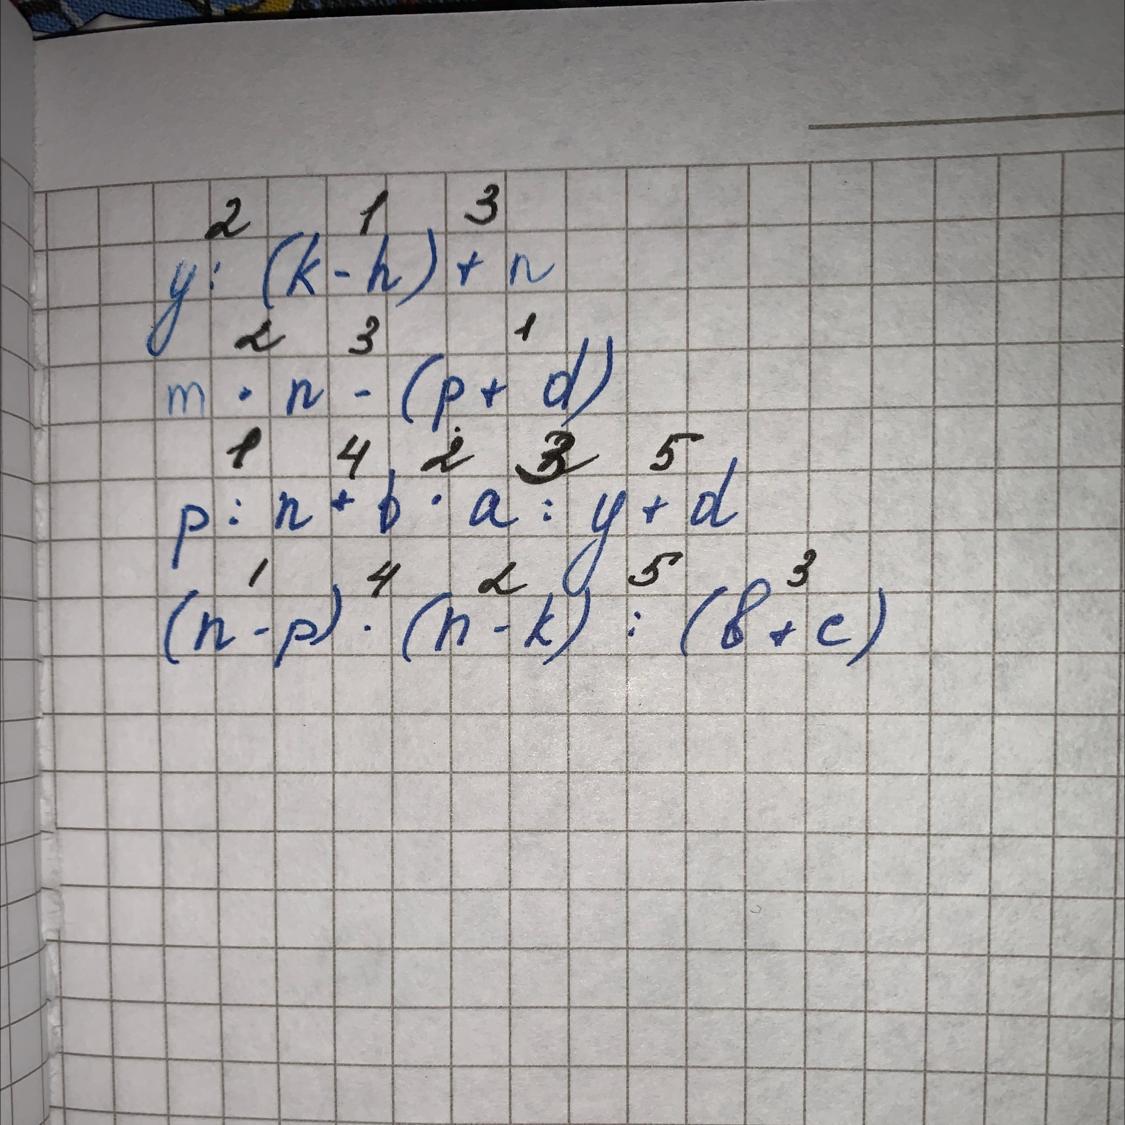 2 1 3
y : (k - h) + n
2 3 1
m · n - (p + d)
1 4 2 3 5
p : n + b · a : y + d
1 4 2 5 3
(n - p) · (n - k) : (в + c)